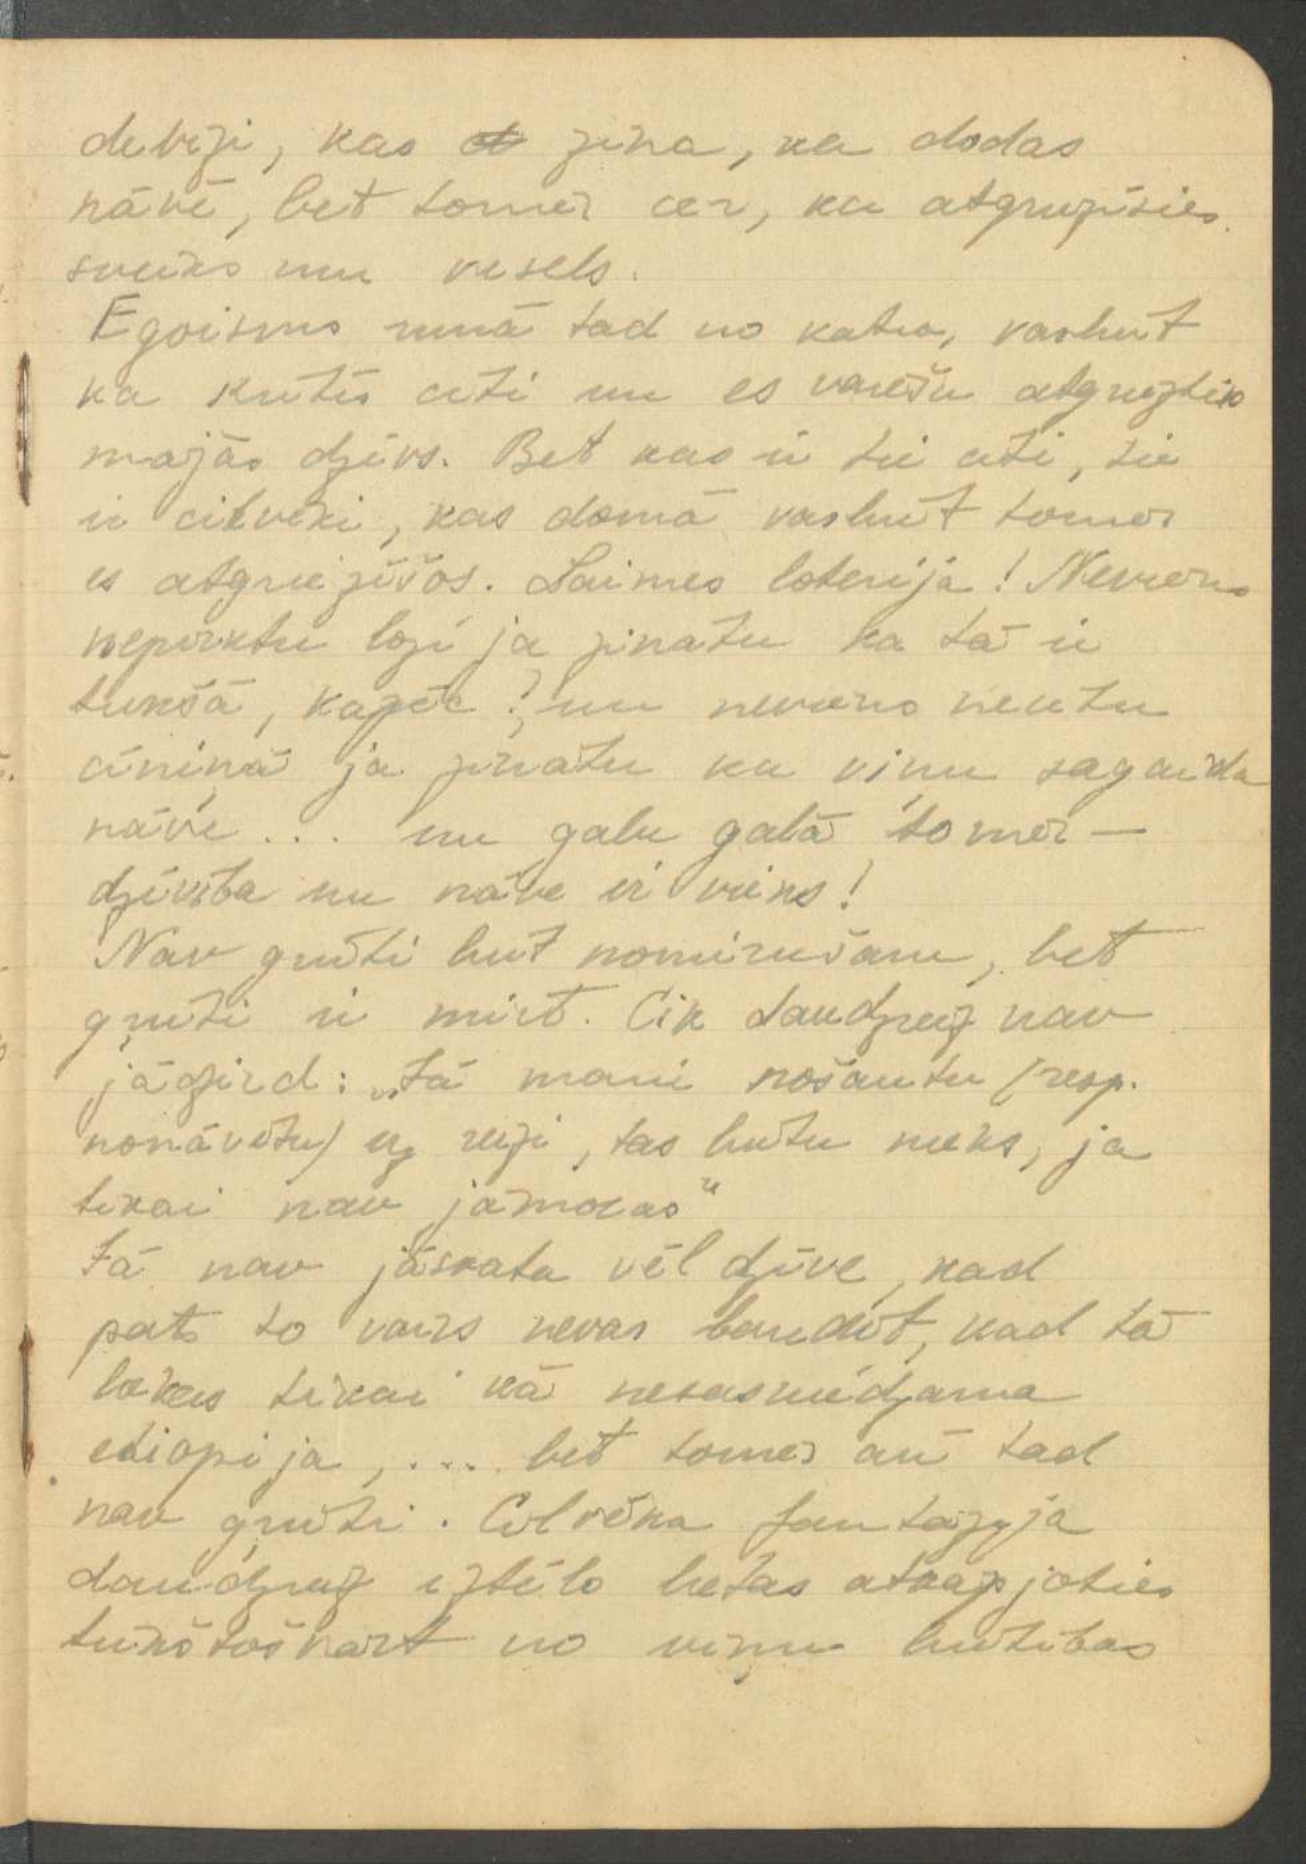 devīzi, kas zina, ka dodas
nāvē, bet tomēr cer, ka atgriezīsies
sveiks un vesels.
Egoisms runā tad no katra, varbūt
ka kritīs citi un es varēšu atgriezties
majās dzīvs. Bet kas ir tie citi, tie
ir cilvēki, kas domā varbūt tomēr
es atgriezīšos. Laimes loterija! Neviens
nepirktu lozi ja zinātu ka tā ir
tukšā, kapēc? un neviens neietu
cīniņā ja zinātu ka viņu sagaida
nāve... un galu galā tomēr —
dzīvība un nāve ir viens!
Nav grūti būt nomirušam, bet
grūti ir mirt. Cik daudzreiz nav
jādzird: „Ja mani nošautu (resp.
nonāvētu) uz reizi, tas būtu nieks, ja
tikai nav jāmocas"
Ja nav jāskata vēl dzīve, kad
pats to vairs nevar baudīt, kad tā
liekas tikai kā nesasniedzama
etiopija, .... bet tomēr arī tad
nav grūti. Cilvēka fantāzija
daudzreiz iztēlo lietas atkāpjoties
tūkstoškārt no viņu būtības